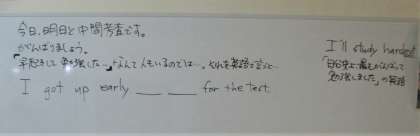 今日、明日と中間考査です。
がんばりましょう。
「早起きして勉強した…」なんて人もいるのでは…。それを英語で言うと…
I got up early ＿ ＿ for the test.
I'll study hardest
「自分史上、最もがんばって
勉強しました」の英語